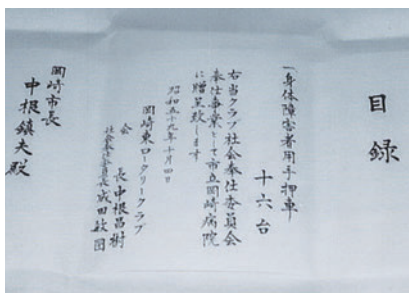 目録
一、身体障害者用手押車
十六台
右当クラブ社会奉仕委員会
奉仕事業として市立岡崎病院
に贈呈致します
昭和五十九年十月四日
岡崎東ロータリークラブ
会長中根昌樹
社会奉仕委員長成田敏圀
岡崎市長
中根鎮夫殿